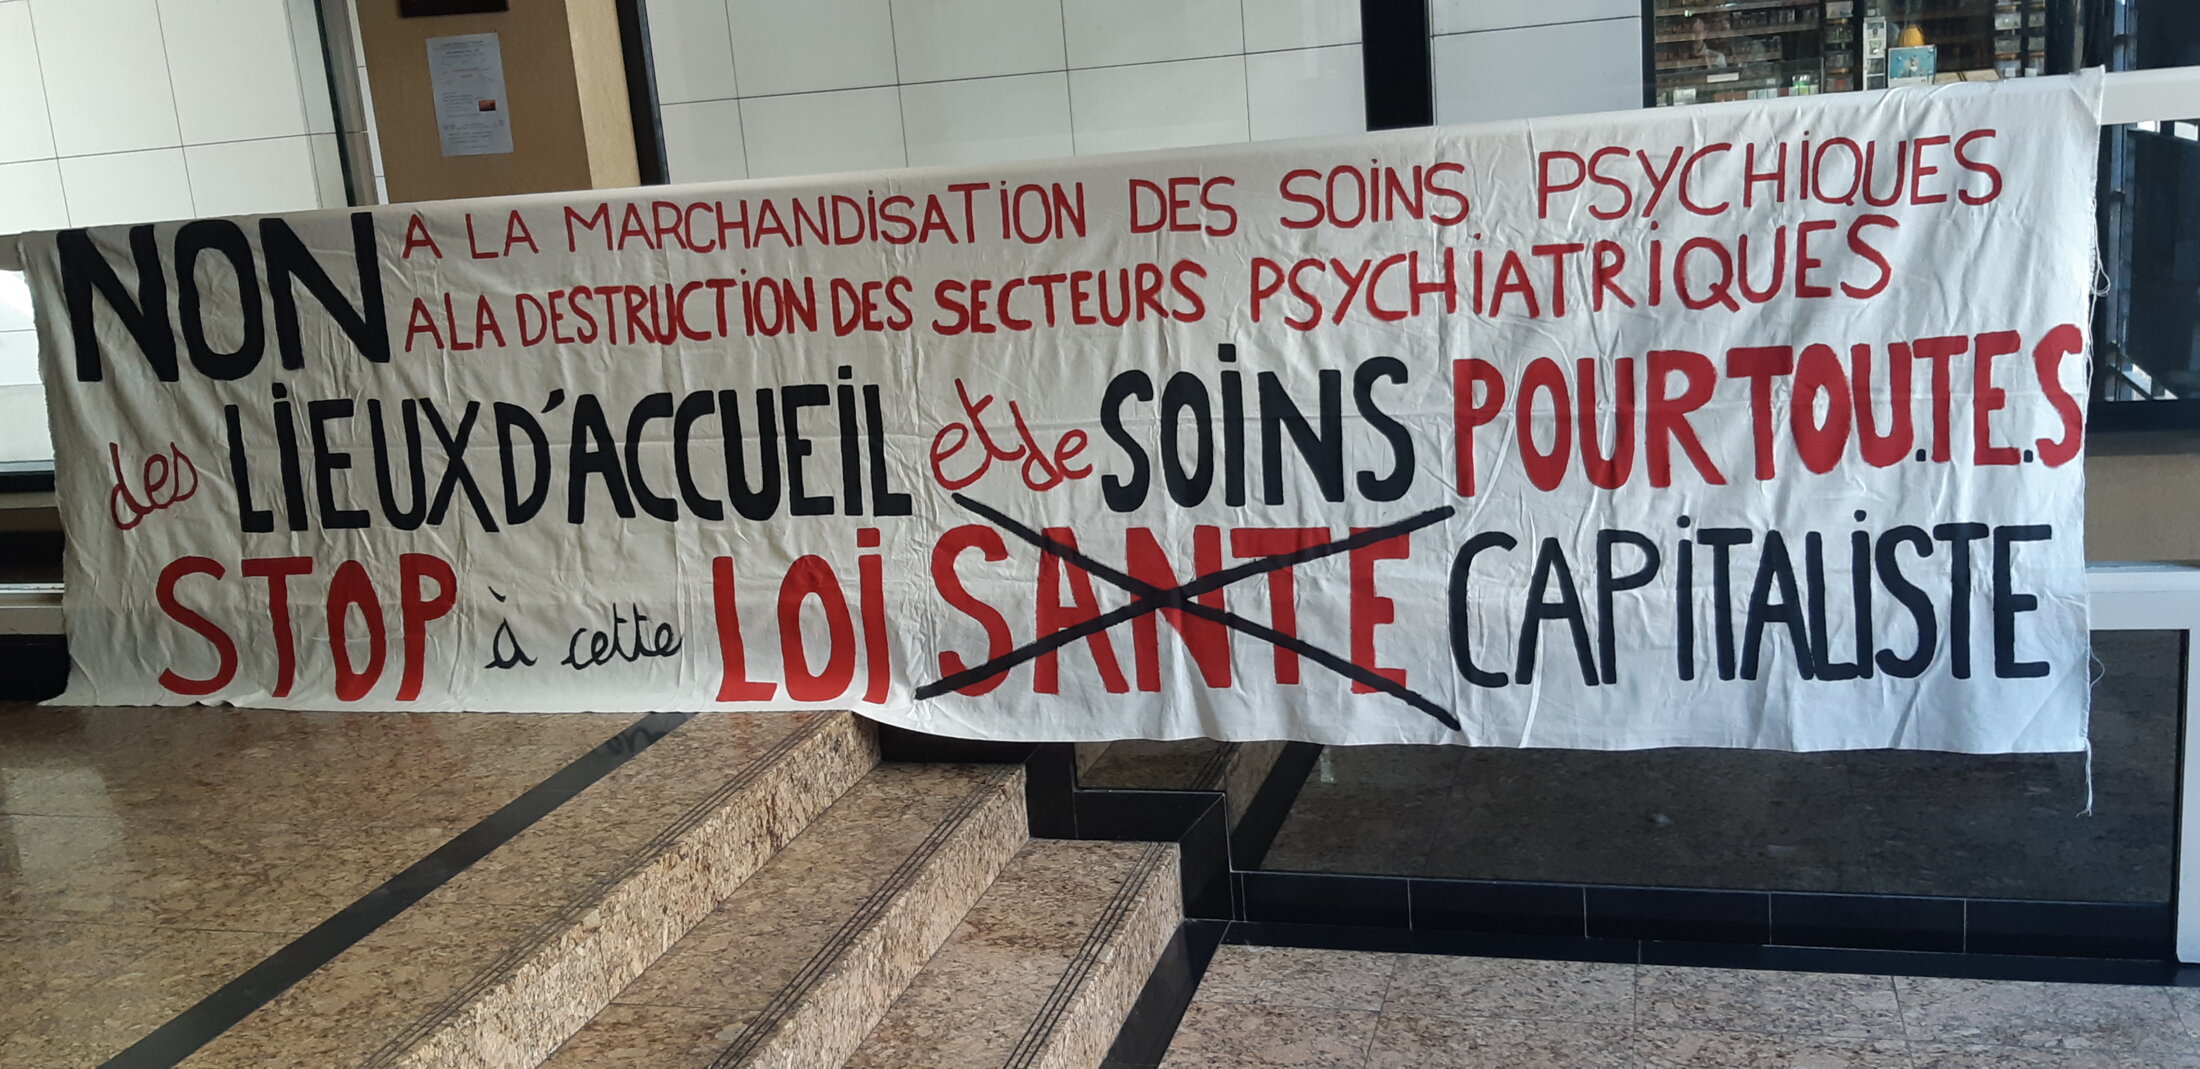 NON A LA MARCHANDISATION DES SOINS PSYCHIQUES
A LA DESTRUCTION DES SECTEURS PSYCHIATRIQUES
des LIEUX D'ACCUEIL et de SOINS POUR TOU.TE.S
STOP à cette LOI SANTE CAPITALISTE